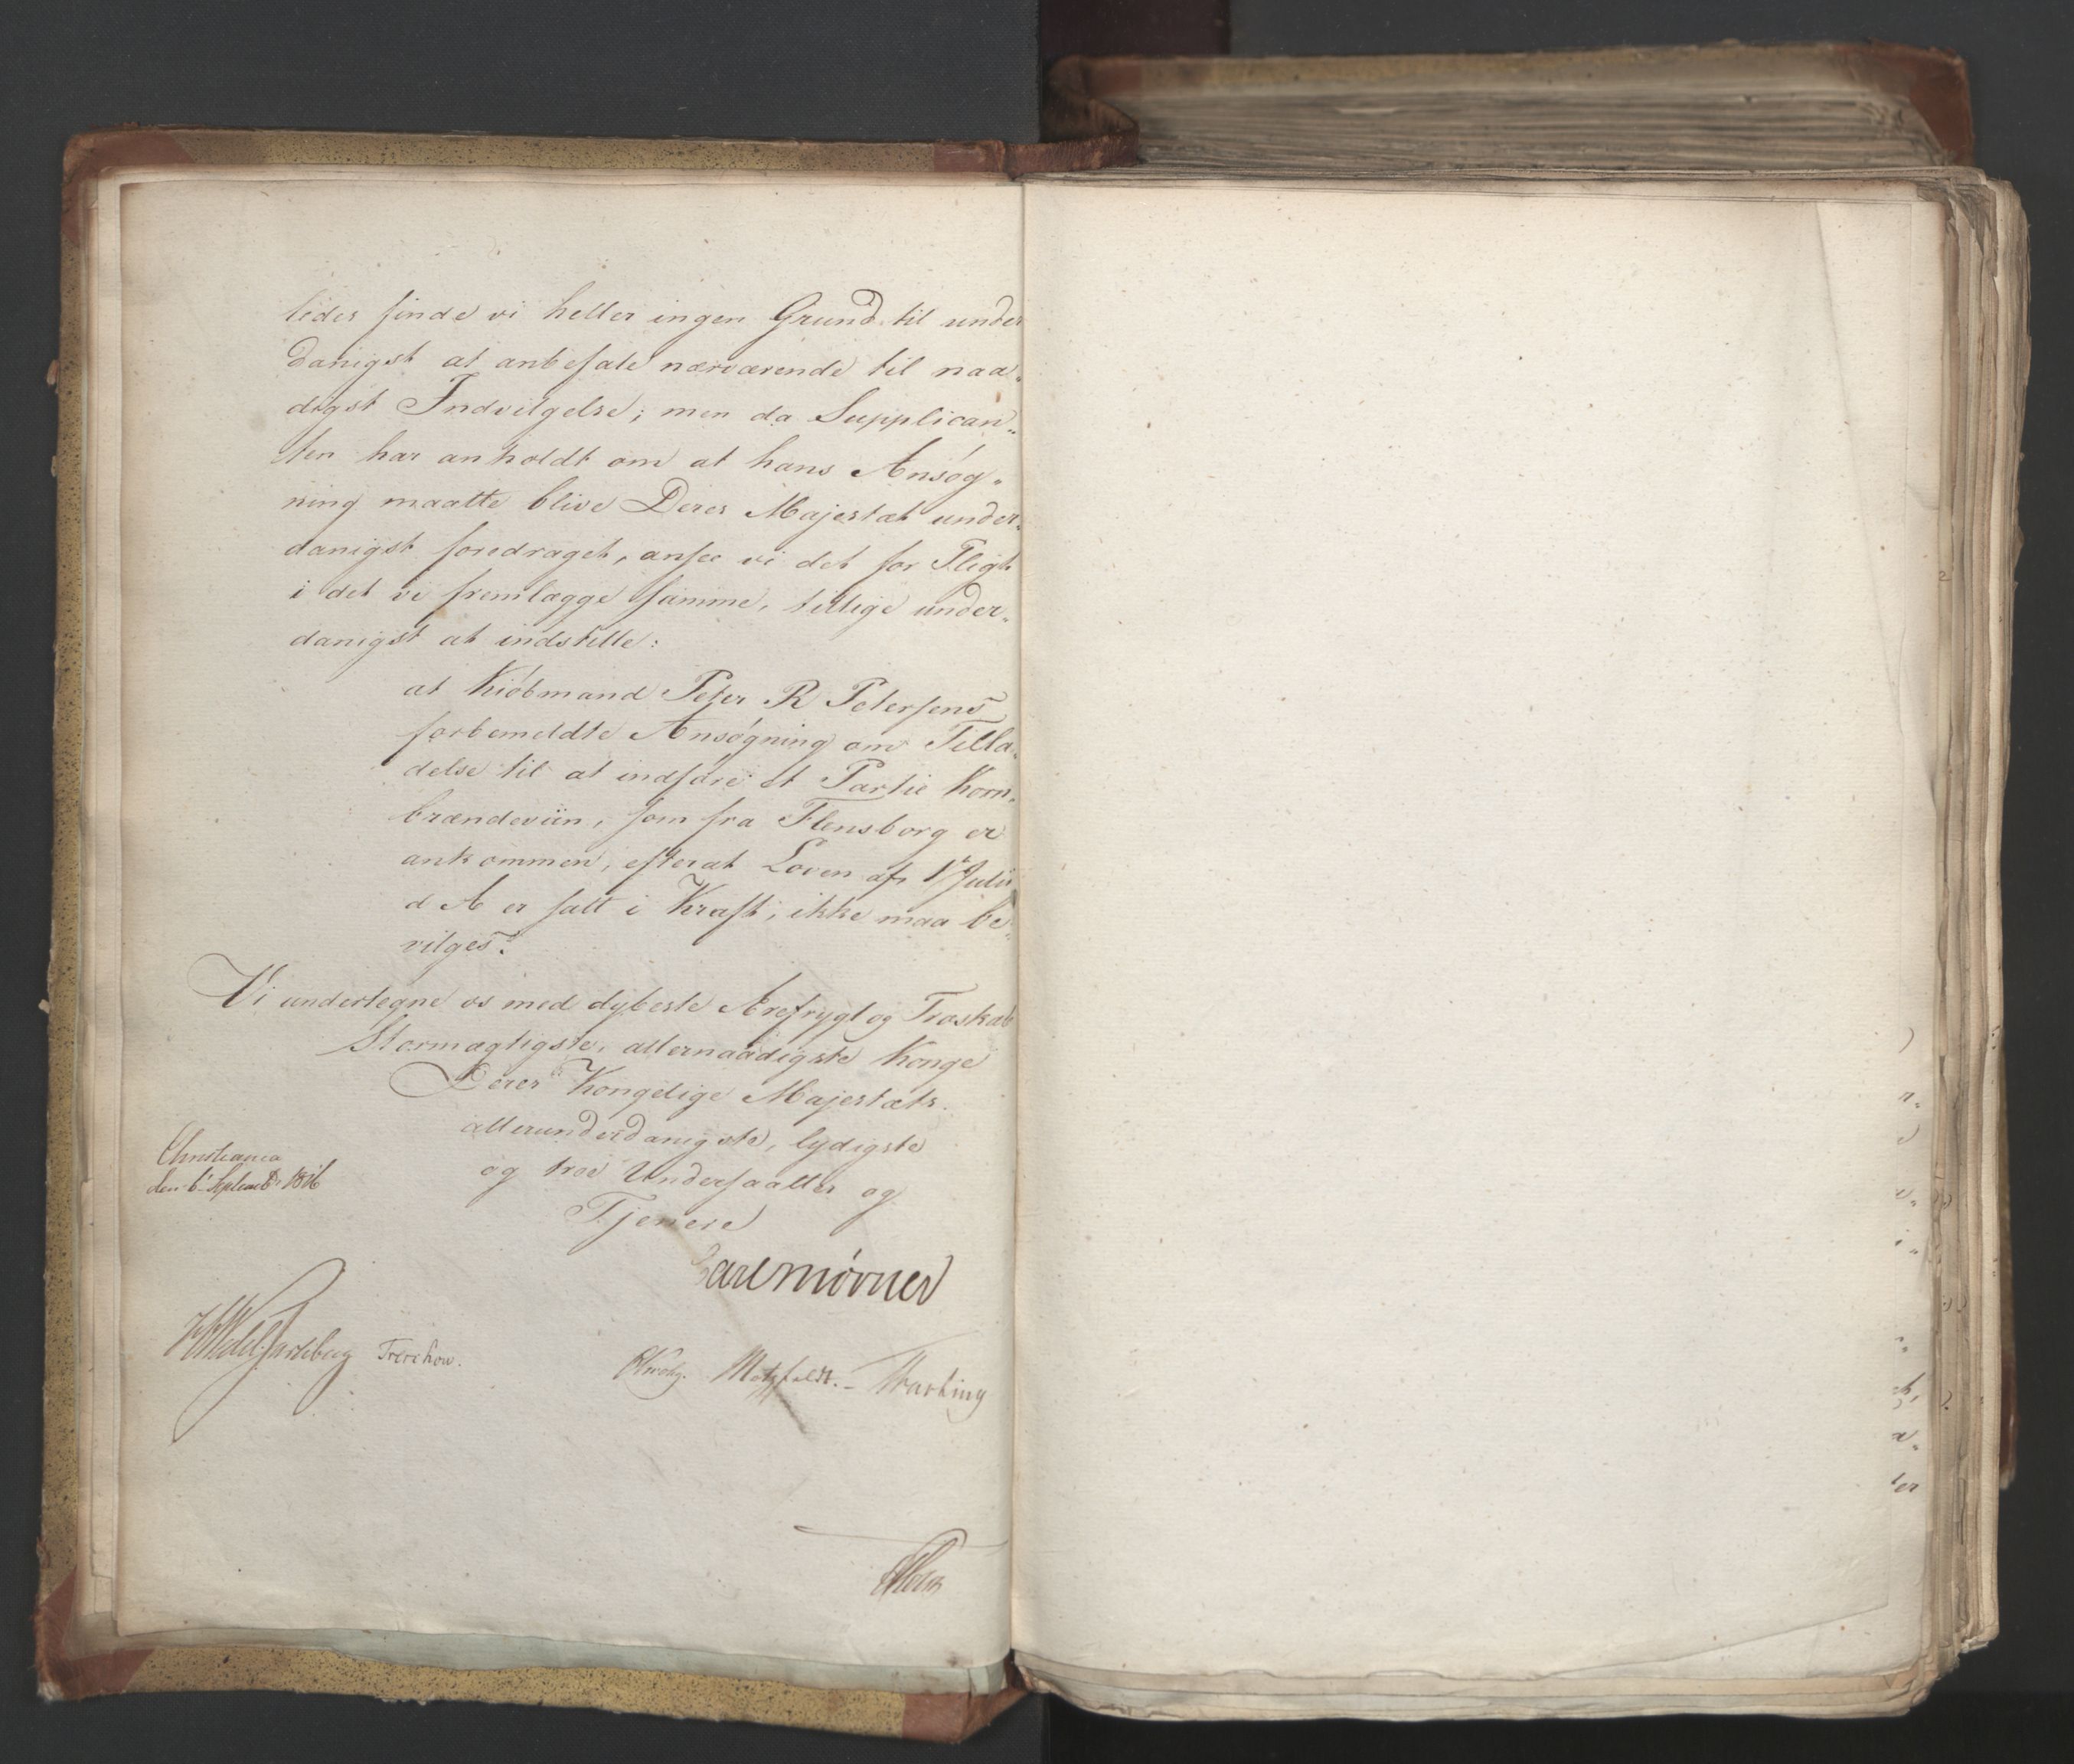 ledes finde vi heller ingen Grund til under
danigst at anbefale nærværende til naa„
digst Indvilgelse; men da Supplican„
ten har anholdt om at hans Ansøg„
ning maatte blive Deres Majestæt under„
danigst foredraget, ansee vi det for Pligt
i det vi fremlægge samme, tillige under„
danigst at indstille:
at Kiøbmand Peter R Petersens
forbemeldte Ansøgning om Tilla„
delse til at indføre et Partie Korn„
brændeviin, som fra Flensborg er
ankommen, efterat Loven af 1 Julii
d A er satt i Kraft, ikke maa be„
vilges.
Vi undertegne os med dybeste Ærefrygt og Troskab
Stormægtigste, allernaadigste Konge
Deres Kongelige Majestæts
allerunderdanigste, lydigste
og troe Undersaatter og
Tjenere
Christiania
den 6 Septembr 1816
Carl Mörner
HWedel Jarlsberg Treschow.
Krohg. Motzfeldt. Thaulow
Holm